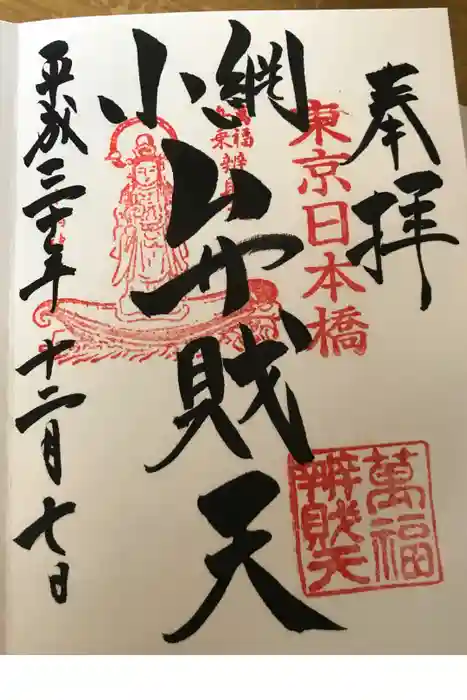 奉拝
東京日本橋
小網
弁財天
萬福
辨財天
平成三十年十二月七日